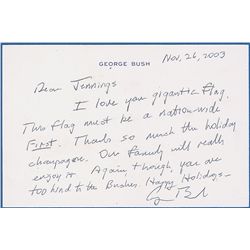 GEORGE BUSH
Nov. 26, 2003
Dear Jennings
I love your gigantic flag.
This flag must be a nation-wide
First. Thanks so much the holiday
champagne. Our family will really
enjoy it. Again, though, you are
too kind to the Bushes. Happy Holidays—
G Bush